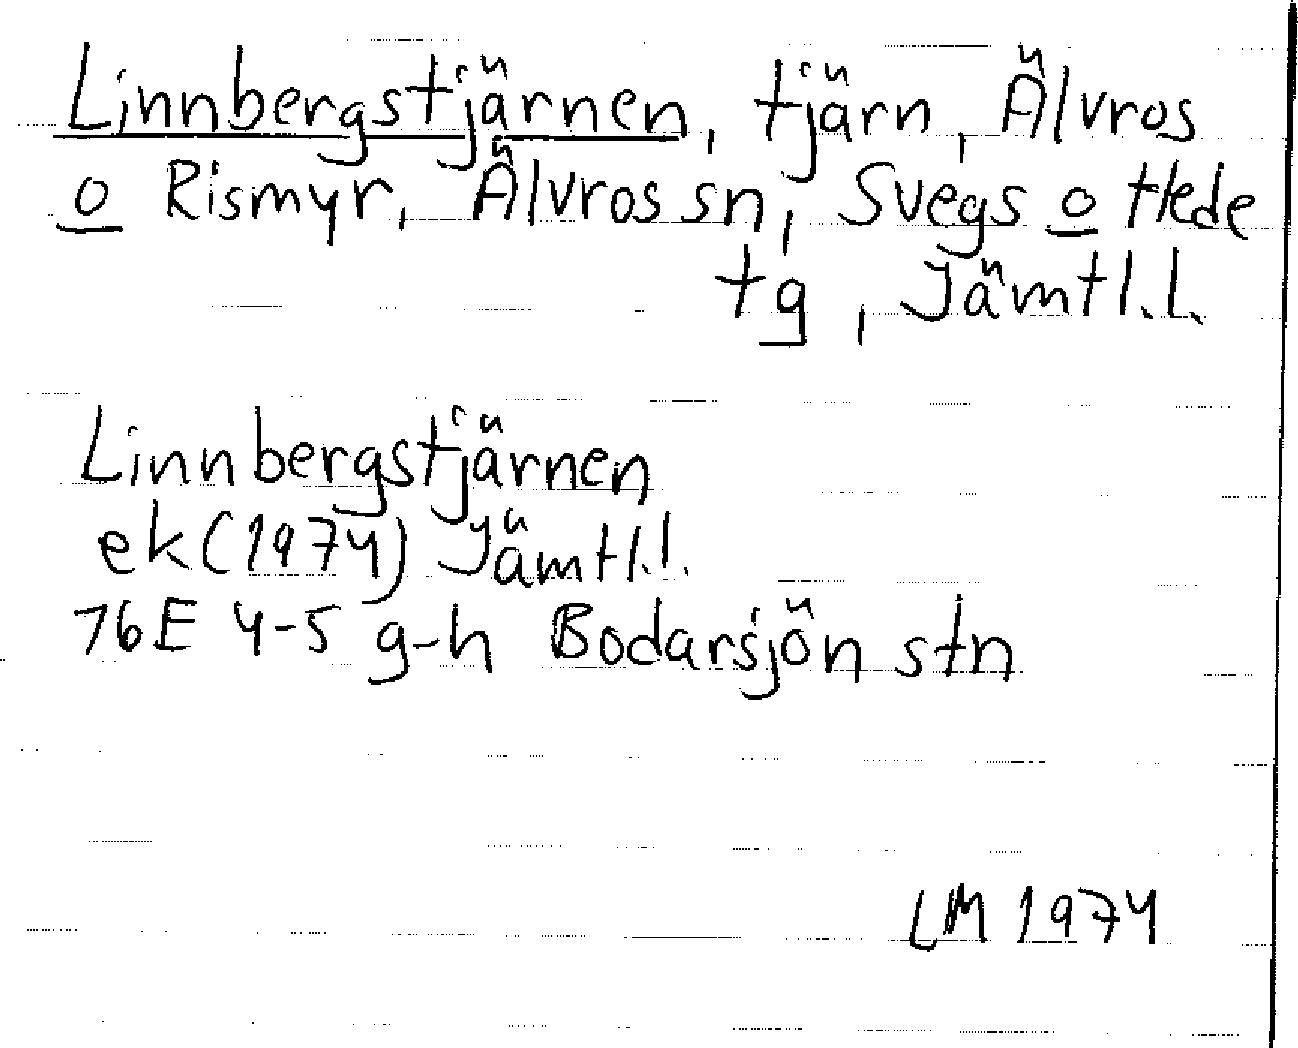 Linnbergstjärnen, tjärn, Älvros
o Rismyr, Älvros sn, Svegs o Hede
tg, Jämtl.l.
Linnbergstjärnen
ek (1974) Jämtl.l.
76E 4-5 g-h Bodarsjön stn
LM 1974